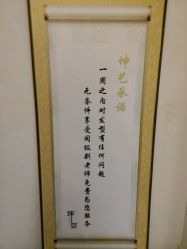 坤艺承诺
一周之内对发型有任何问题
无条件享受同级别老师免费为您服务